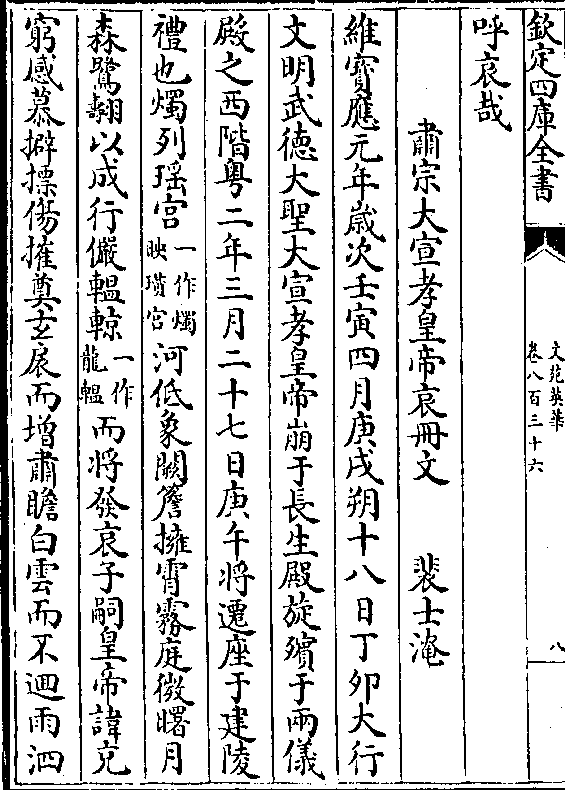 欽定四庫全書
文苑英華
卷八百三十六
八
呼哀哉
肅宗大宣孝皇帝哀冊文 裴士淹
維寶應元年歲次壬寅四月庚戌朔十八日丁卯大行
文明武德大聖大宣孝皇帝崩于長生殿旋殯于兩儀
殿之西階粵二年三月二十七日庚午將遷座于建陵
禮也燭列瑤宮一作燭映瓚宮河低象闕簷擁霄霧庭微曙月
森鷺翿以成行儼轀輬一作龍轀而將發哀子嗣皇帝諱充
窮感慕擗摽傷摧奠玄扆而增肅瞻白雲而不迴雨泗